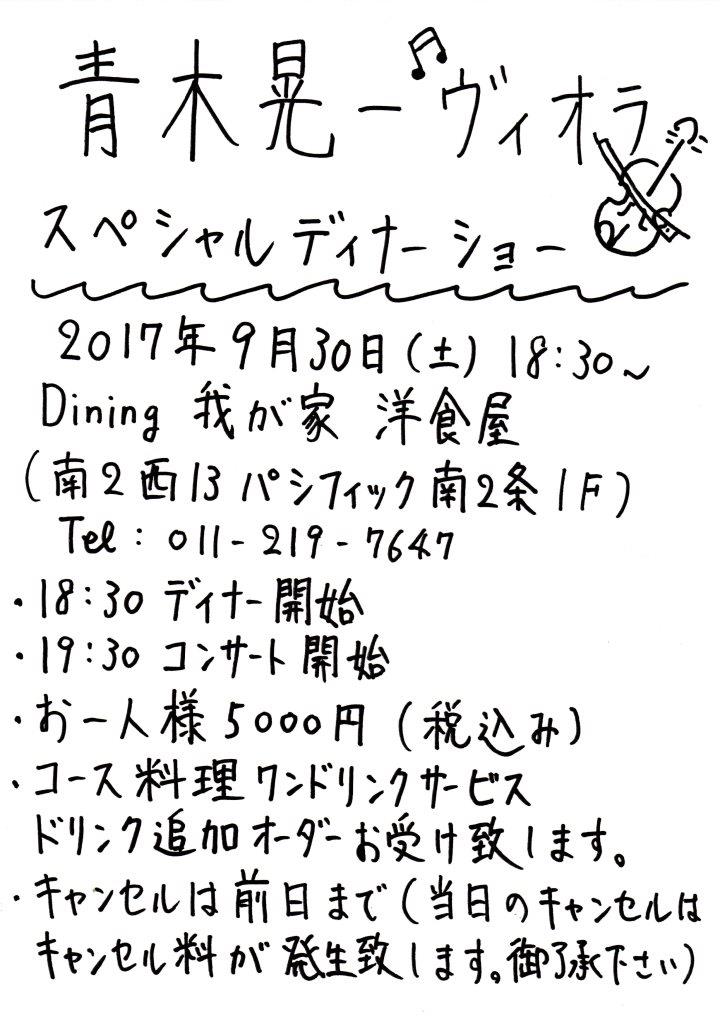 青木晃一ヴィオラ
スペシャルディナーショー
2017年9月30日(土) 18:30~
Dining 我が家 洋食屋
(南2西13パシフィック南2条1F)
Tel:011-219-7647
・18:30 ディナー開始
・19:30 コンサート開始
・お一人様5000円(税込み)
・コース料理ワンドリンクサービス
ドリンク追加オーダーお受け致します。
・キャンセルは前日まで(当日のキャンセルは
キャンセル料が発生致します。御了承下さい)